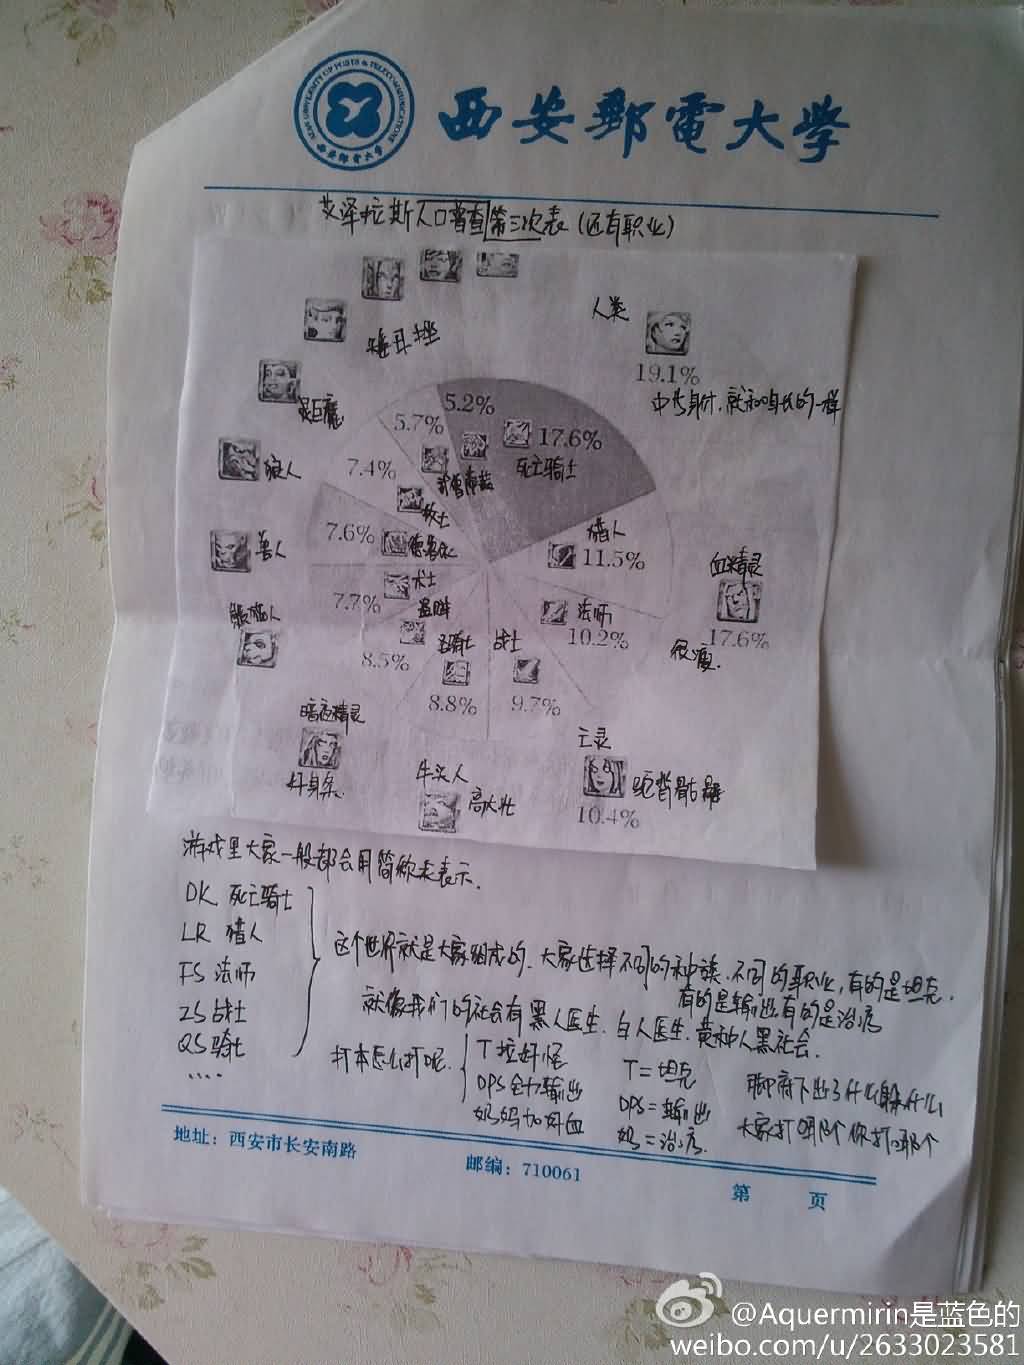 XI'AN UNIVERSITY OF POSTS & TELECOMMUNICATIONS
西安邮电大学
西安郵電大学
艾泽拉斯人口普查第三次表(还有职业)
人类
19.1%
中等身材,就和咱长的一样
矮丑挫
5.2%
5.7%
17.6%
死亡骑士
狼人
7.4%
牧士
猎人
11.5%
兽人
7.6%
德鲁伊
血精灵
17.6%
很瘦.
术士
7.7%
法师
10.2%
8.5%
圣骑士
8.8%
战士
9.7%
暗夜精灵
好身条.
牛头人
高大壮
亡灵
驼背骷髅
10.4%
游戏里大家一般都会用简称来表示.
DK 死亡骑士
LR 猎人
FS 法师
ZS 战士
QS 骑士
....
这个世界就是大家组成的.大家选择不同的种族.不同的职业,有的是坦克.
有的是输出,有的是治疗
就像我们的社会有黑人医生.白人医生.黄种人黑社会.
打本怎么打呢.
T拉好怪
DPS全力输出
奶妈加好血
T=坦克
DPS=输出
奶=治疗.
脚底下出了什么躲什么
大家打哪个你打哪个
地址:西安市长安南路
邮编:710061
第 页
@Aquermirin是蓝色的
weibo.com/u/2633023581